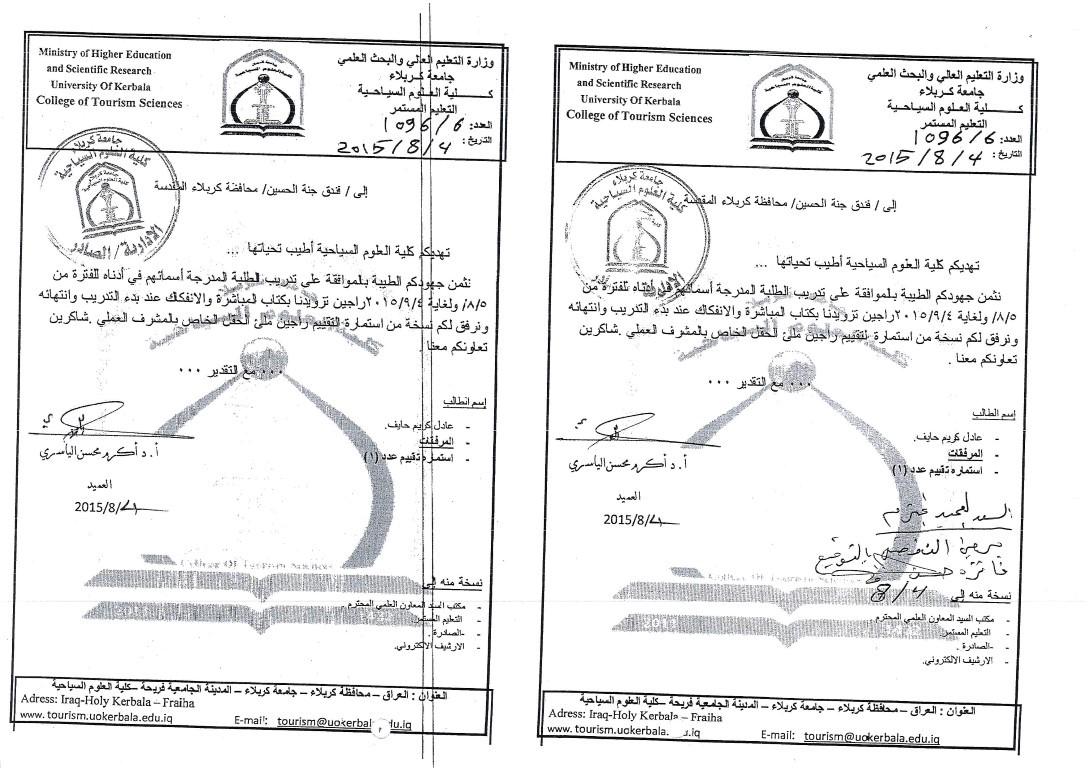 Ministry of Higher Education
and Scientific Research
University Of Kerbala
College of Tourism Sciences
وزارة التعليم العالي والبحث العلمي
جامعة كربلاء
كلية العلوم السياحية
التعليم المستمر
العدد: 1096/6
التاريخ: 2015/8/4
جامعة كربلاء
كلية العلوم السياحية
الإدارية/الصادر
إلى / فندق جنة الحسين/ محافضة كربلاء المقدسة
تهديكم كلية العلوم السياحية أطيب تحياتها ...
نثمن جهودكم الطيبة بالموافقة على تدريب الطلبة المدرجة أسمائهم في أدناه للفترة من
٨/٥/ ولغاية ٢٠١٥/٩/٤راجين تزويدنا بكتاب المباشرة والانفكاك عند بدء التدريب وانتهائه
ونرفق لكم نسخة من استمارة التقييم راجين ملئ الحقل الخاص بالمشرف العملي .شاكرين
تعاونكم معنا .
... مع التقدير ...
إسم الطالب
- عادل كريم حايف.
- المرفقات
- استماره تقييم عدد (١)
أ.د أكرم محسن الياسري
العميد
2015/8/4
نسخة منه إلى
- مكتب السيد المعاون العلمي المحترم .
- التعليم المستمر.
- -الصادرة .
- الارشيف الالكتروني.
العنوان : العراق – محافظة كربلاء – جامعة كربلاء – المدينة الجامعية فريحة –كلية العلوم السياحية
Adress: Iraq-Holy Kerbala – Fraiha
www.tourism.uokerbala.edu.iq E-mail: tourism@uokerbala.edu.iq
Ministry of Higher Education
and Scientific Research
University Of Kerbala
College of Tourism Sciences
وزارة التعليم العالي والبحث العلمي
جامعة كربلاء
كلية العلوم السياحية
التعليم المستمر
العدد: 1096/6
التاريخ: 2015/8/4
جامعة كربلاء
كلية العلوم السياحية
إلى / فندق جنة الحسين/ محافظة كربلاء المقدسة
تهديكم كلية العلوم السياحية أطيب تحياتها ...
نثمن جهودكم الطيبة بالموافقة على تدريب الطلبة المدرجة أسمائهم في أدناه للفترة من
٨/٥/ ولغاية ٢٠١٥/٩/٤راجين تزويدنا بكتاب المباشرة والانفكاك عند بدء التدريب وانتهائه
ونرفق لكم نسخة من استمارة التقييم راجين ملئ الحقل الخاص بالمشرف العملي .شاكرين
تعاونكم معنا .
... مع التقدير ...
إسم الطالب
- عادل كريم حايف.
- المرفقات
- استماره تقييم عدد (١)
أ.د أكرم محسن الياسري
العميد
2015/8/4
السيد العميد المحترم
يرجى التفضل بالتوقيع
8/4
نسخة منه إلى
- مكتب السيد المعاون العلمي المحترم .
- التعليم المستمر.
- -الصادرة .
- الارشيف الالكتروني.
العنوان : العراق – محافظة كربلاء – جامعة كربلاء – المدينة الجامعية فريحة –كلية العلوم السياحية
Adress: Iraq-Holy Kerbala – Fraiha
www.tourism.uokerbala. .iq E-mail: tourism@uokerbala.edu.iq